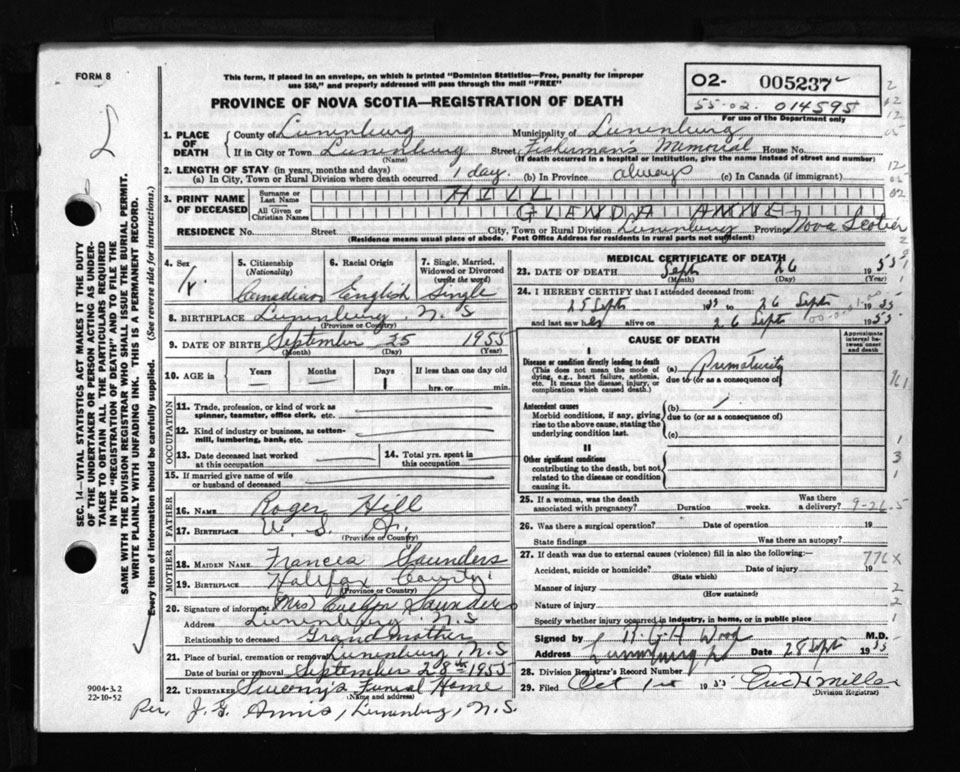 FORM 8
This form, if placed in an envelope, on which is printed "Dominion Statistics—Free, penalty for improper
use $50," and properly addressed will pass through the mail "FREE"
PROVINCE OF NOVA SCOTIA—REGISTRATION OF DEATH
02- 005237
55-02. 014595
For use of the Department only
SEC. 14—VITAL STATISTICS ACT MAKES IT THE DUTY
OF THE UNDERTAKER OR PERSON ACTING AS UNDER-
TAKER TO OBTAIN ALL THE PARTICULARS REQUIRED
IN THE "REGISTRATION OF DEATH" AND TO FILE THE
SAME WITH THE DIVISION REGISTRAR WHO SHALL ISSUE THE BURIAL PERMIT.
WRITE PLAINLY WITH UNFADING INK. THIS IS A PERMANENT RECORD.
Every item of information should be carefully supplied. (See reverse side for instructions.)
1. PLACE OF DEATH
County of Lunenburg Municipality of Lunenburg
If in City or Town Lunenburg Street Fisherman's Memorial House No.
(Name) (If death occurred in a hospital or institution, give the name instead of street and number)
2. LENGTH OF STAY (in years, months and days)
(a) In City, Town or Rural Division where death occurred 1 day. (b) In Province always (c) In Canada (if immigrant)
3. PRINT NAME OF DECEASED
Surname or Last Name HILL
All Given or Christian Names GLENDA ANNE
RESIDENCE No. Street City, Town or Rural Division Lunenburg Province Nova Scotia
(Residence means usual place of abode. Post Office Address for residents in rural parts not sufficient)
4. Sex
5. Citizenship (Nationality) Canadian
6. Racial Origin English
7. Single, Married, Widowed or Divorced (write the word) Single
8. BIRTHPLACE Lunenburg, N.S
(Province or Country)
9. DATE OF BIRTH September 25 1955
(Month) (Day) (Year)
10. AGE in Years Months Days 1 If less than one day old
hrs. or min.
OCCUPATION
11. Trade, profession, or kind of work as
spinner, teamster, office clerk, etc.
12. Kind of industry or business, as cotton-
mill, lumbering, bank, etc.
13. Date deceased last worked
at this occupation
14. Total yrs. spent in
this occupation
15. If married give name of wife
or husband of deceased
FATHER
16. NAME Roger Hill
17. BIRTHPLACE U. S. A.
(Province or Country)
MOTHER
18. MAIDEN NAME Frances Saunders
19. BIRTHPLACE Halifax County
(Province or Country)
20. Signature of informant Mrs Evelyn Saunders
Address Lunenburg N.S
Relationship to deceased Grandmother
21. Place of burial, cremation or removal Lunenburg, N.S
Date of burial or removal September 28th 1955
22. UNDERTAKER Sweeny's Funeral Home
(Name and address)
Per, J. G. Annis, Lunenburg, N.S.
9004-3.2
22-10-52
MEDICAL CERTIFICATE OF DEATH
23. DATE OF DEATH Sept 26 1955
(Month) (Day) (Year)
24. I HEREBY CERTIFY that I attended deceased from:
25 Sept 55 to 26 Sept 1955
and last saw her alive on 26 Sept 1955
CAUSE OF DEATH
Approximate interval between onset and death
I
Disease or condition directly leading to death
(This does not mean the mode of
dying, e.g., heart failure, asthenia,
etc. It means the disease, injury, or
complication which caused death.)
(a) Prematurity
due to (or as a consequence of)
Antecedent causes
Morbid conditions, if any, giving
rise to the above cause, stating the
underlying condition last.
(b)
due to (or as a consequence of)
(c)
II
Other significant conditions
contributing to the death, but not
related to the disease or condition
causing it.
25. If a woman, was the death
associated with pregnancy? Duration weeks. Was there a delivery?
9-26-5
26. Was there a surgical operation? Date of operation 19
State findings Was there an autopsy?
27. If death was due to external causes (violence) fill in also the following:—
776X
Accident, suicide or homicide? Date of injury 19
(State which)
Manner of injury
(How sustained)
Nature of injury
Specify whether injury occurred in industry, in home, or in public place
Signed by H. G. A. Wood M.D.
Address Lunenburg Date 28 Sept 1955
28. Division Registrar's Record Number
29. Filed Oct 1st 1955
(Division Registrar)